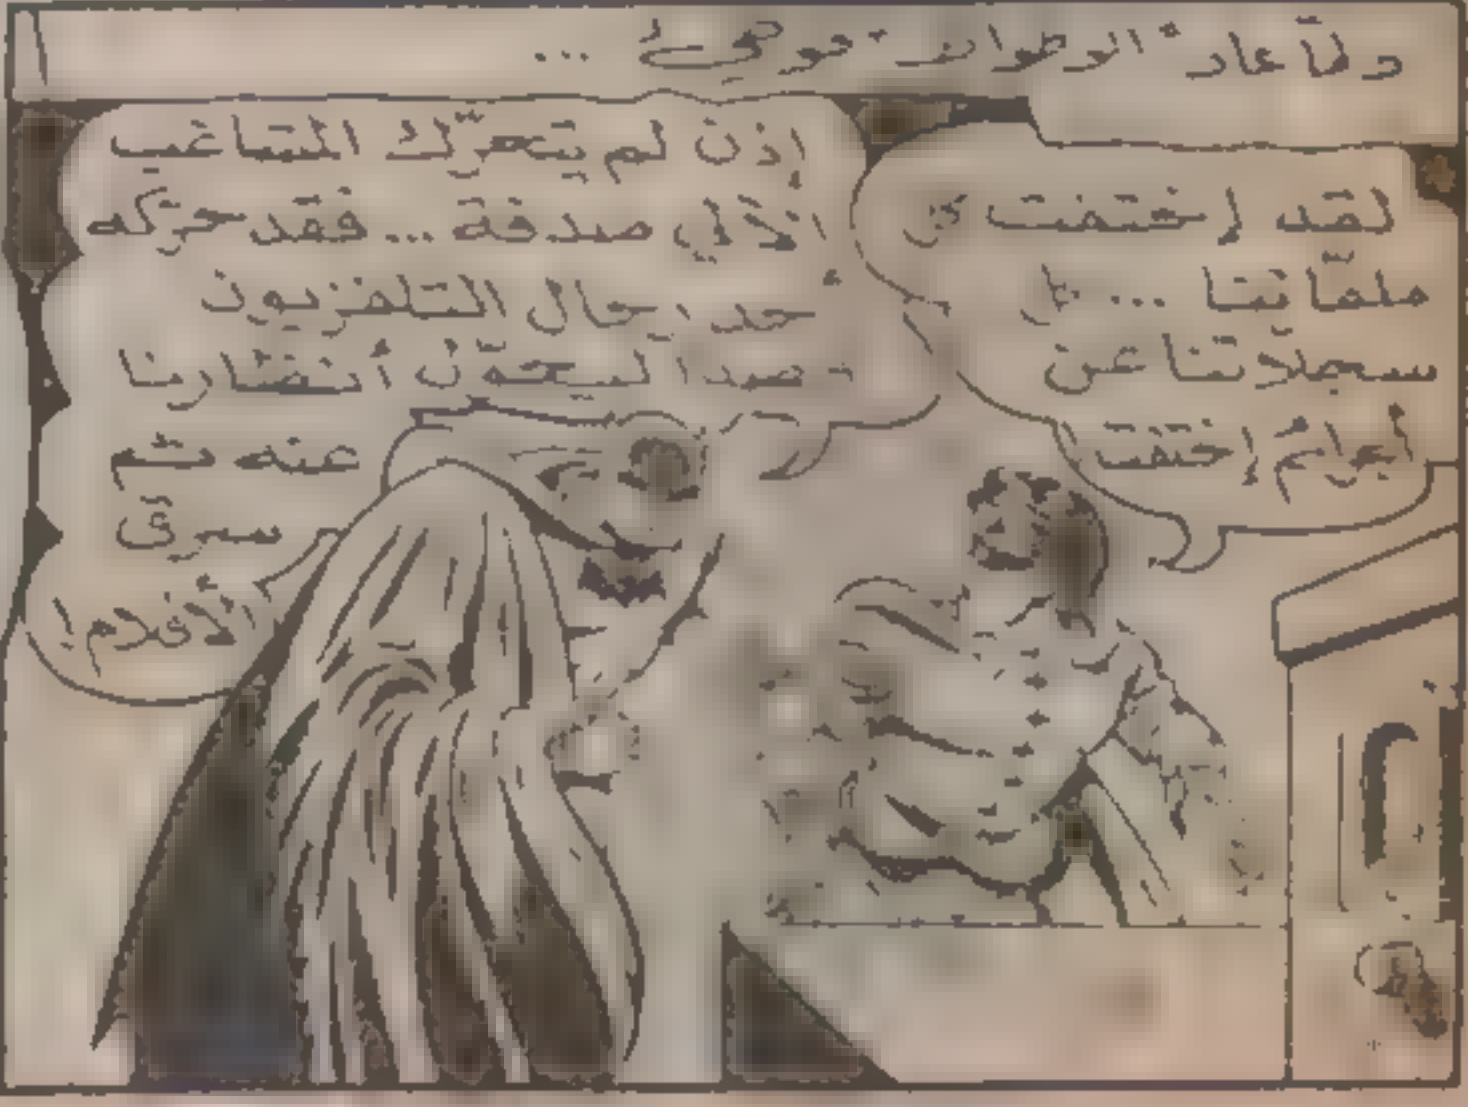 ولمّا عاد "الوطواط" ...
لقد إختفت كل
ملفّاتنا ... كل
سجلاّتنا عن
إختفت
إذن لم يتحرّك المشاغب
صدفة ... فقد حرّكه
أحد رجال التلفزيون
قصدا ليحوّل أنظارنا
عنه ثم
سرق
الأفلام!